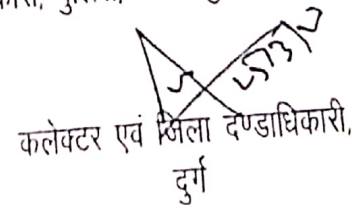 कलेक्टर एवं जिला दण्डाधिकारी,
दुर्ग